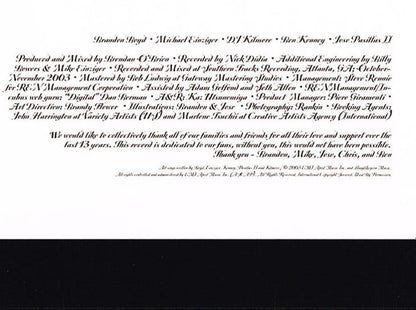 Brandon Boyd • Michael Einziger • DJ Kilmore • Ben Kenney • Jose Pasillas II
Produced and Mixed by Brendan O'Brien • Recorded by Nick Didia • Additional Engineering by Billy
Bowers & Mike Einziger • Recorded and Mixed at Southern Tracks Recording, Atlanta, GA; October-
November 2003 • Mastered by Bob Ludwig at Gateway Mastering Studios • Management: Steve Rennie
for REN Management Corporation • Assisted by Adam Geffond and Seth Allen • REN Management/In-
cubus web guru: "Digital" Dan Berman • A&R: Kaz Utsunomiya • Product Manager: Piero Giramonti
Art Direction: Brandy Flower • Illustrations: Brandon & Jose • Photography: Rankin • Booking Agents:
John Harrington at Variety Artists (US) and Marlene Tsuchii at Creative Artists Agency (International)
We would like to collectively thank all of our families and friends for all their love and support over the
last 13 years. This record is dedicated to our fans, without you, this would not have been possible.
Thank you - Brandon, Mike, Jose, Chris, and Ben
All songs written by Boyd, Einziger, Kenney, Pasillas II and Kilmore, © 2003 EMI April Music Inc. and Music.
All rights controlled and administered by EMI April Music Inc. All Rights Reserved. International Copyright Secured. Used By Permission.